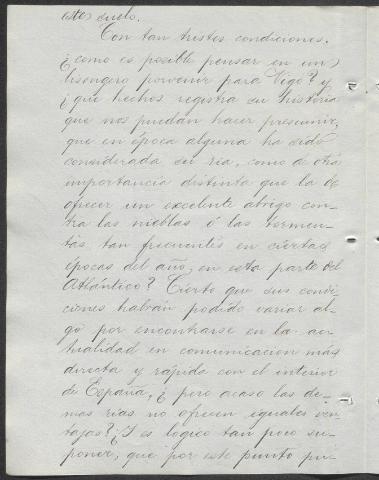 este suelo.
Con tan tristes condiciones.
¿como es posible pensar en un
lisongero porvenir para Vigo? y
¿que hechos registra su historia
que nos puedan hacer presumir,
que en época alguna ha sido
considerada su ria, como de otra
importancia distinta que la de
ofrecer un excelente abrigo con-
tra las nieblas ó las tormen-
tas tan frecuentes en ciertas
épocas del año, en esta parte del
Atlántico? Cierto que sus condi-
ciones habrán podido variar al-
go por encontrarse en la ac-
tualidad en comunicacion más
directa y rápida con el interior
de España, ¿pero acaso las de-
mas rias no ofrecen iguales ven-
tajas? ¿Y es logico tan poco su-
poner, que por este punto pu-